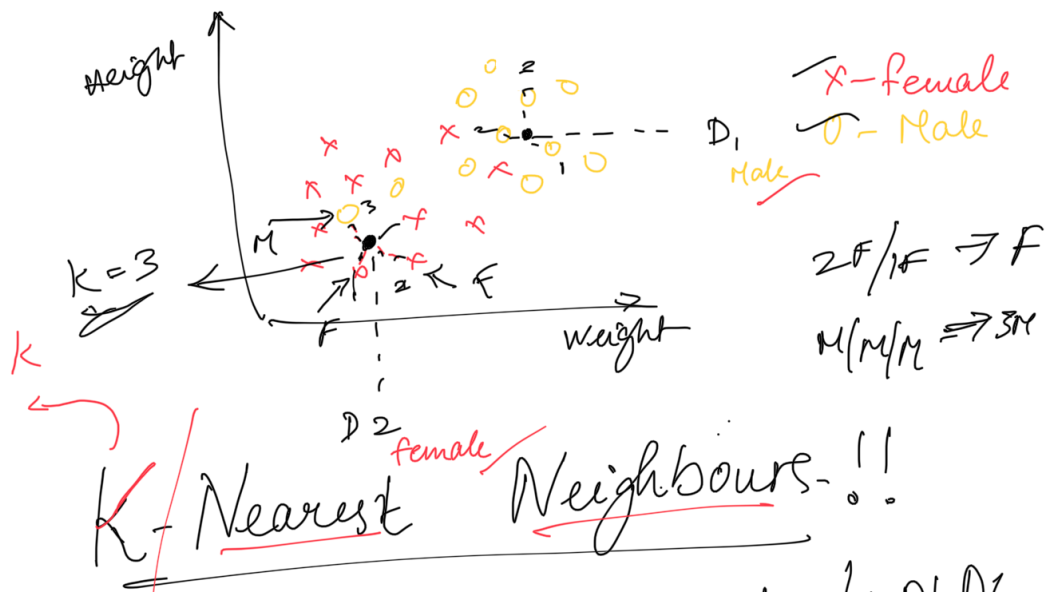 Height
2
x-female
O - Male
D1
1
Male
3
M
K = 3
2
F
F
2F/1F → F
Weight
M/M/M => 3M
K
D2
female
K - Nearest Neighbours - !!